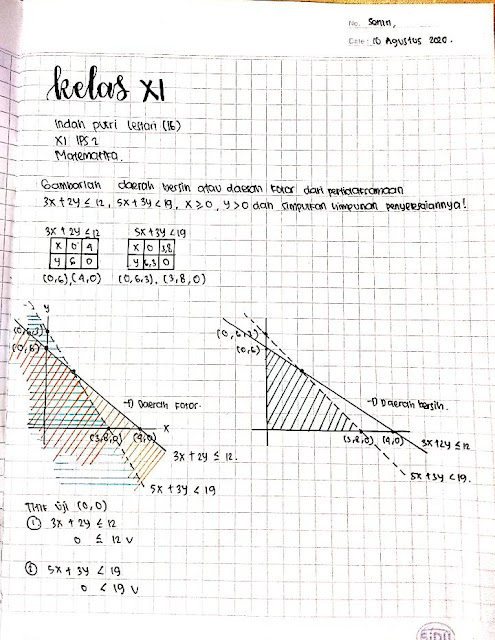 No. Senin,
Date: 10 Agustus 2020.
kelas XI
Indah putri lestari (16)
XI IPS 2
Matematika.
Gambarlah daerah bersih atau daerah kotor dari pertidaksamaan
3x + 2y ≤ 12, 5x + 3y < 19, x ≥ 0, y > 0 dan simpulkan himpunan penyelesaiannya!
3x + 2y ≤ 12
x 0 4
y 6 0
(0,6), (4,0)
5x + 3y < 19
x 0 3,8
y 6,3 0
(0,6,3), (3,8,0)
y
(0,6,3)
(0,6)
→ Daerah kotor.
x
(3,8,0) (4,0)
3x + 2y ≤ 12.
5x + 3y < 19
(0,6,3)
(0,6)
→ Daerah bersih.
(3,8,0) (4,0)
3x + 2y ≤ 12
5x + 3y < 19.
Titik Uji (0,0)
① 3x + 2y ≤ 12
0 ≤ 12 v
② 5x + 3y < 19
0 < 19 v